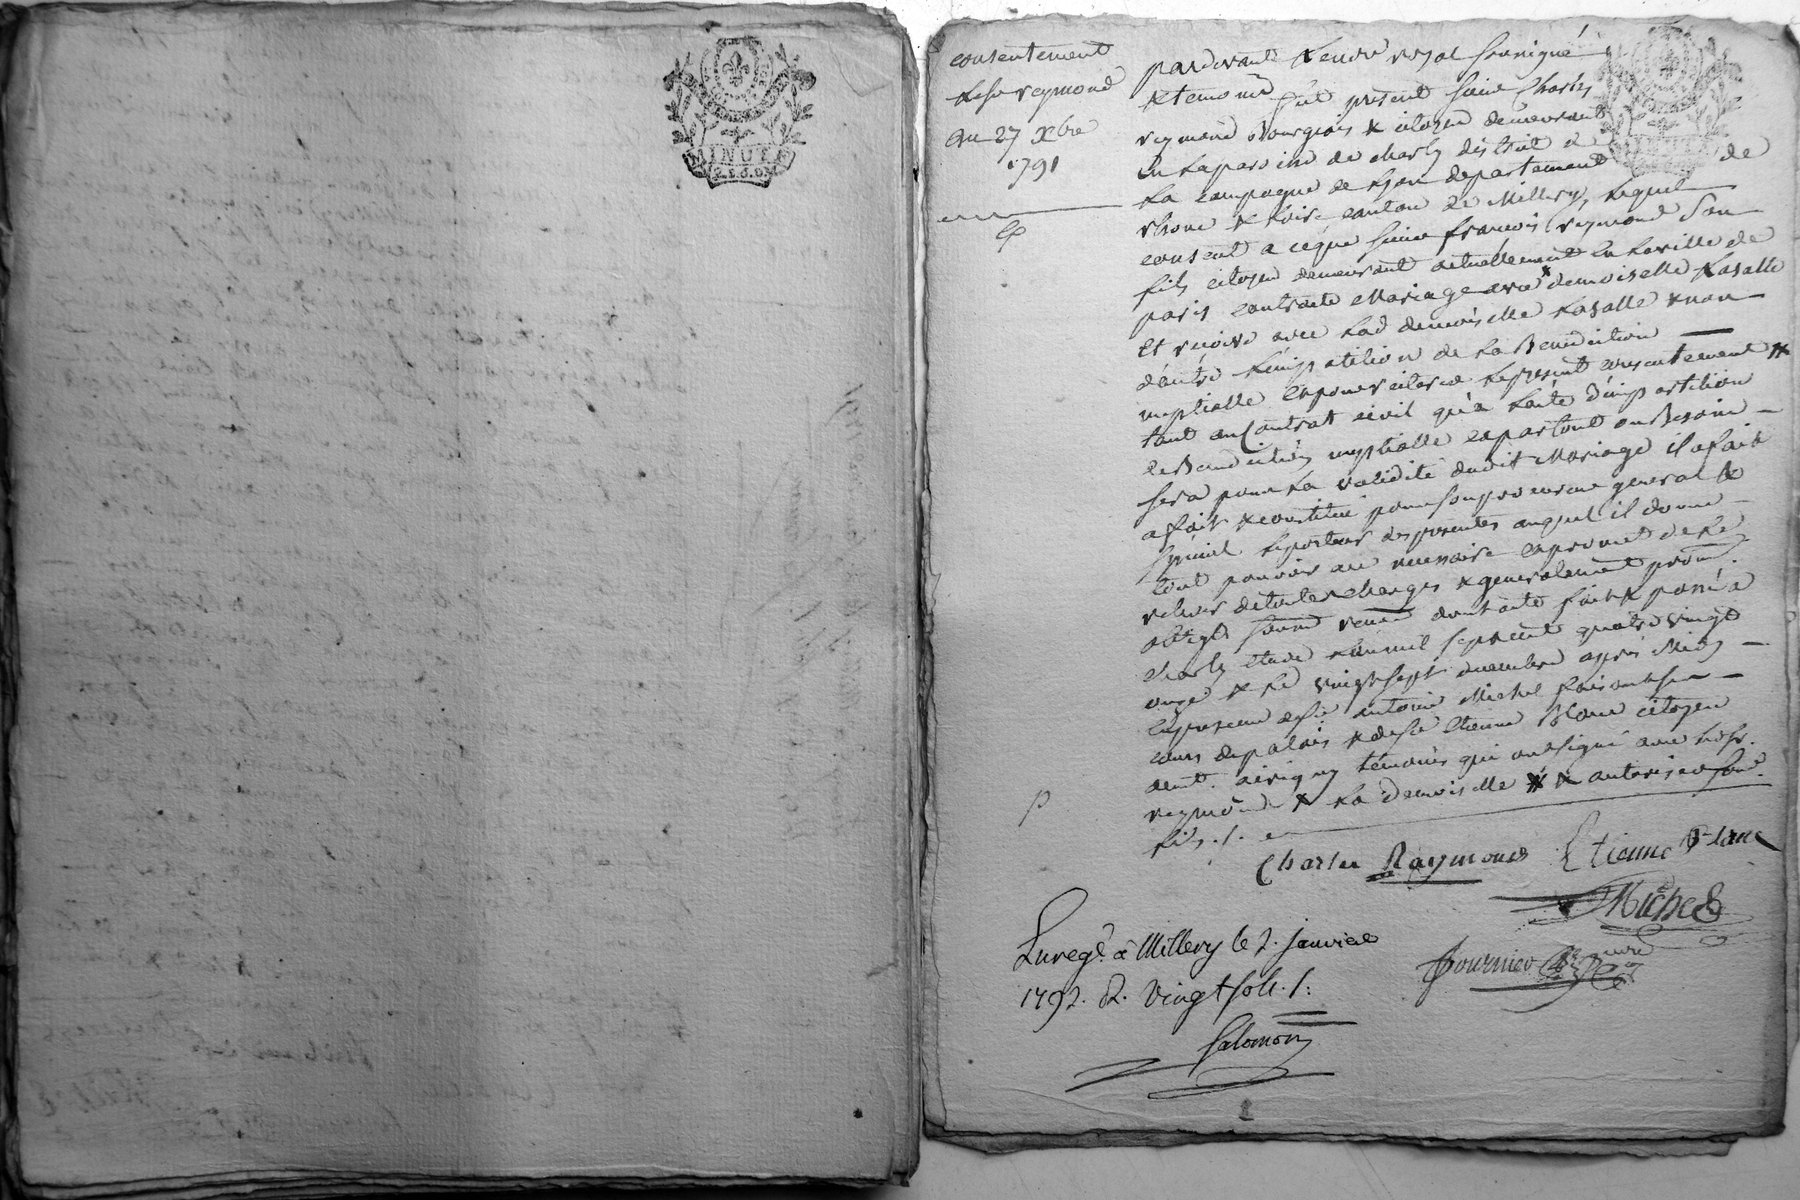 MINUTE
2.S.6.D.
consentement
de sr reymond
du 27 Xbre
1791
pardevant le nore royal soussigné
& temoins fut present sieur Charles
reymond Bourgeois & citoyen demeurant
en la paroisse de charly district de
la campagne de Lyon departement de
rhone & Loire canton de Millery, Lequel
consent a ce que sieur francois reymond son
fils citoyen demeurant actuellement en la ville de
paris contracte Mariage avec demoiselle Lasalle
et recoive avec lad demoiselle Lasalle & non
d'autre l'impartition de la Benediction
nuptialle en pour citer le present consentement &
tant au Contrat civil qu'a l'acte d'impartition
de Benediction nuptialle et partout ou Besoin
sera pour la validité dudit Mariage il a fait
a fait & constitué pour son procureur general &
special le porteur des presentes auquel il donne
tout pouvoir a ce necessaire et promet de le
relever de toutes charges & generalement prom.
oblige soum renon dont acte fait & passé a
charly etude L'an mil sept cent quatre vingt
onze & le vingt sept decembre après Midy
en presence de sr antoine Michel
cours de palais & de sr Etienne Blanc citoyen
demt. a irigny témoins qui ont signé avec led sr.
reymond & la demoiselle & autorise sond.
fils ./.
Charles Raymond Etienne Blanc
Michel
fournier nore
Enregé. à Millery le 2. Janvier
1792. R. Vingt sols ./.
Salomon
1